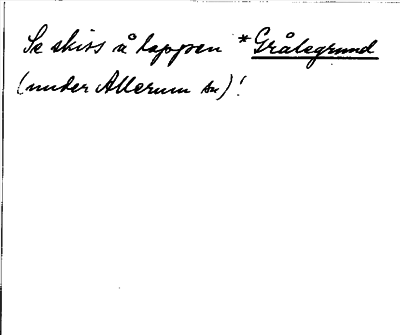 Se skiss å lappen *Grålegrund
(under Allerum sn)!